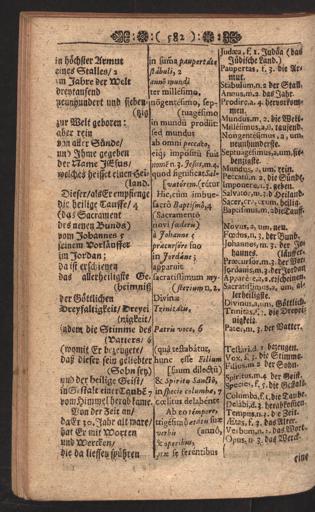 ( 582 )
in höchster Armut
eines Stalles/ 2
im Jahre der Welt
dreytausend
neunhundert und sieben-
tzig
zur Welt geboren:
aber rein
von aller Sünde/
und Ihme gegeben
der Name JEsus/
welches heisset einen Hei-
(land.
Dieser/ als Er empfienge
die heilige Tauffe/ 4
(das Sacrament
des neuen Bunds)
vom Johannes
seinem Vorläuffer
im Jordan;
da ist erschienen
das allerheiligste Ge-
(heimniß
der Göttlichen
Dreyfaltigkeit/ Dreyei-
(nigkeit/
indem die Stimme des
Vatters/ 6
(womit Er bezeugete/
daß dieser sein geliebter
(Sohn sey)
und der heilige Geist/
in Gestalt einer Taube 7
vom Himmel herab kame.
Von der Zeit an/
da Er 30. Jahr alt ware/
hat Er mit Worten
und Wercken/
die da liessen spühren
in summa paupertate
stabuli, 2
anno mundi
ter millesimo,
nongentesimo, sep-
(tuagesimo
in mundum prodiit:
sed mundus
ab omni peccato,
eiq; impositum fuit
nomen Jesu,
quod significat Sal-
vatorem,
Hic, cum imbue-
sacro Baptismo, 4
(Sacramento
novi foederis)
à Johanne
præcursore suo
in Jordane;
apparuit
sacratissimum my-
(sterium
Divinæ
Trinitatis,
Patris voce, 6
(quâ testabatur,
hunc esse Filium
(suum dilectum)
& Spiritu Sancto,
in specie columbæ, 7
coelitus delabente.
Ab eo tempore,
(anno,
verbis
& operibus,
præ se ferentibus
Judæa, f. 1. Judäa (das
Jüdische Land.)
Paupertas, f. 3. die Ar-
mut.
Stabulum, n. 2. der Stall.
Annus, m. 2. das Jahr.
Prodire, a. 4. hervorkom-
men.
Mundus, m. 2. die Welt.
Millesimus, a, ũ, tausend.
Nongentesimus, a, um,
neunhunderste.
Septuagesimus, a, um, sie-
bentzigste.
Mundus, a, um, rein.
Peccatum, n. 2. die Sünde.
Imponere, a. 3. geben.
Salvator, m. 3. der Heiland.
Sacer, cra, crum, heilig.
Baptismus, m. 2. die Tauff.
Novus, a, um, neu.
Fœdus, n. 3. der Bund.
Johannes, m. 3. der Jo-
hannes. (läuffer.
Præcursor, m. 3. der Vor-
Jordanis, m. 3. der Jordan.
Sacratissimus, a, um, al-
lerheiligste.
Divinus, a, um, Göttlich.
Trinitas, f. 3. die Dreyei-
nigkeit.
Pater, m. 3. der Vatter.
Testari, d. 1. bezeugen.
Vox, f. 3. die Stimme.
Filius, m. 2. der Sohn.
Spiritus, m. 4. der Geist.
Species, f. 5. die Gestalt.
Columba, f. 1. die Taube.
Tempus, n. 3. die Zeit.
Ætas, f. 3. das Alter.
Verbum, n. 2. das Wort.
Opus, n. 3. das Werck.
eine